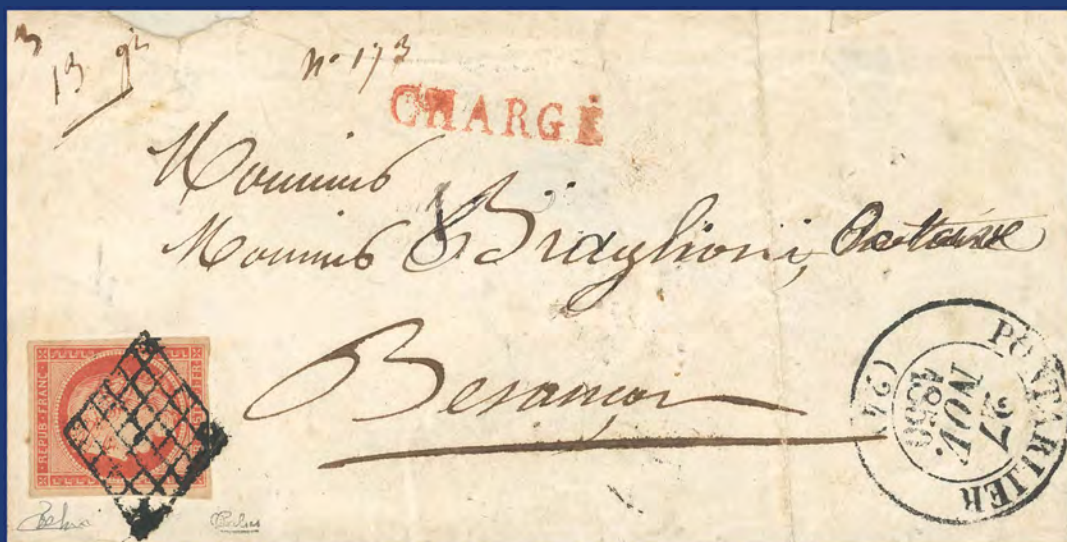 13 gr
n° 173
CHARGÉ
Monsieur
Monsieur Braglioni, Notaire
Besançon
REPUB FRANC
PONTARLIER
27
NOV.
1850
(24)